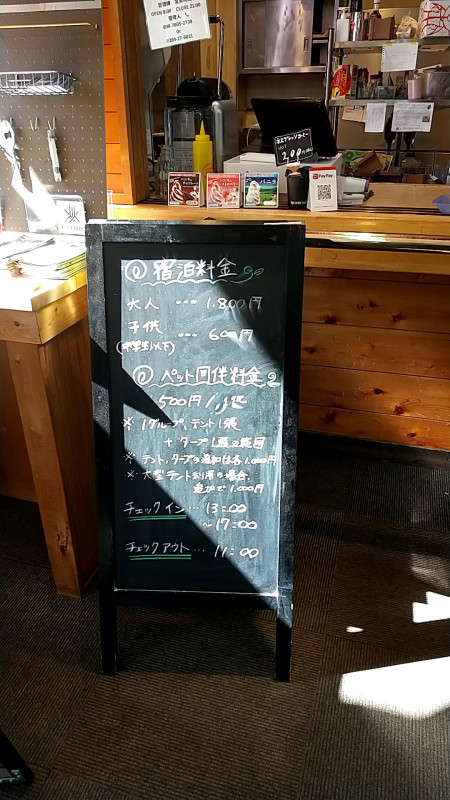 OPEN 8:00 CLOSE 21:00
管理人
PayPay
バニラ
宿泊料金
大人 --- 1,800円
子供 --- 600円
(中学生以下)
ペット同伴料金
500円/1匹
※ 1グループ、テント1張
+ タープ1張の範囲
※ テント、タープの追加は各1,000円
※ 大型テント利用の場合、
追加で1,000円
チェックイン… 13:00
~17:00
チェックアウト… 11:00